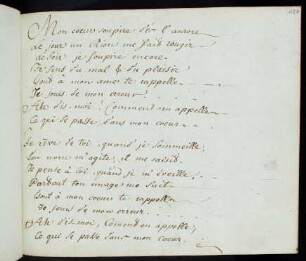 Mon coeur soupire dès l'aurore
le jour un Rien me fait rougir
le soir je soupire encore
Je sens du mal & du plaisir
tout à mon ame te rappelle
Je jouis de mon erreur
Ah dis-moi! Comment on appelle
Ce qui se passe dans mon coeur
Je rêve de toi quand je sommeille,
ton nom m'agite, il me saisit
Je pense à toi quand je m'éveille
Partout ton image me suit
tout à mon coeur te rappelle
Je jouis de mon erreur.
Ah dis-moi, Comment on appelle,
Ce qui se passe dans mon coeur.